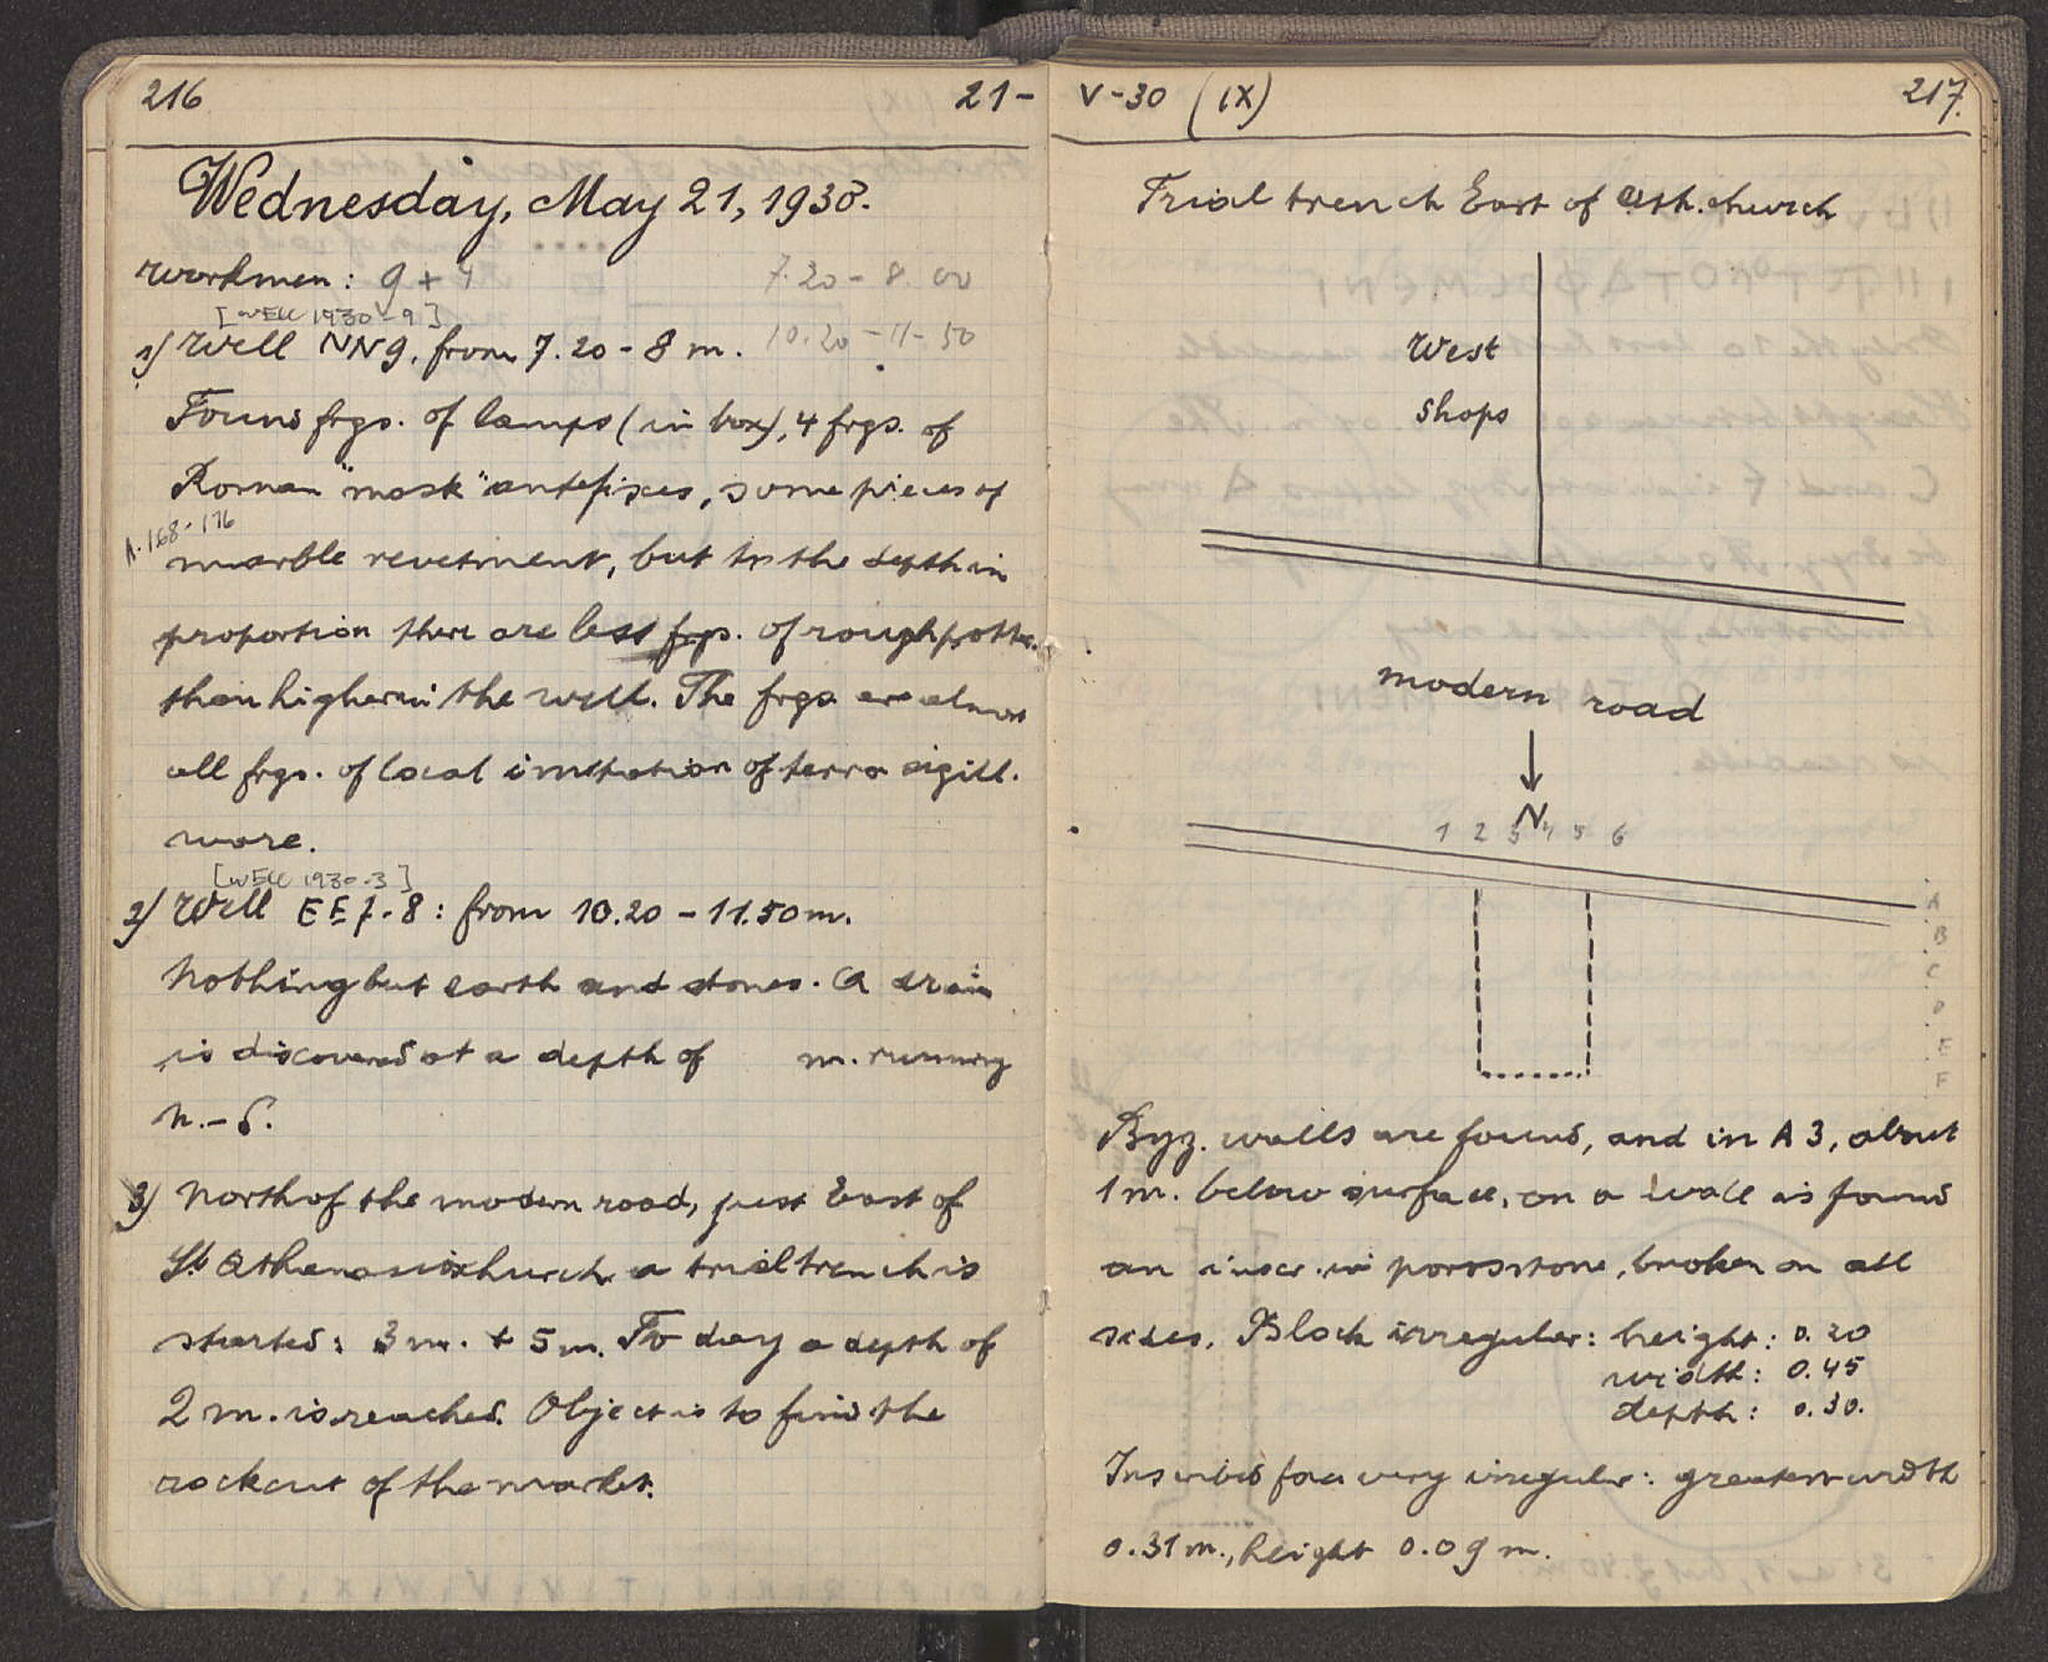 216 21-
Wednesday, May 21, 1930.
Workmen: 9 + 4 7.20 - 8.00
[WELL 1930-9]
1) Well NN9, from 7.20 - 8 m. 10.20 - 11-50
Found frgs. of lamps (in box), 4 frgs. of
Roman "mask" antefixes, some pieces of
A. 168-176
marble revetment, but to the depth in
proportion there are less frgs. of rough potte.
than higher in the well. The frgs are almost
all frgs. of local imitation of terra sigill.
ware.
[WELL 1930-3]
2) Well EE7-8: from 10.20 - 11.50 m.
Nothing but earth and stones. A drain
is discovered at a depth of m. running
N.-S.
3) North of the modern road, just East of
St Athanasios church a trial trench is
started: 3 m. + 5 m. To day a depth of
2 m. is reached. Object is to find the
rockcut of the market.
V-30 (IX) 217.
Trial trench East of Ath. church
West
Shops
modern road
N
1 2 3 4 5 6
A
B
C
D
E
F
Byz. walls are found, and in A3, about
1 m. below surface, on a wall is found
an inscr. in porosstone, broken on all
sides. Block irregular: height: 0.20
width: 0.45
depth: 0.30.
Inscribed face very irregular: greatest width
0.31 m., height 0.09 m.